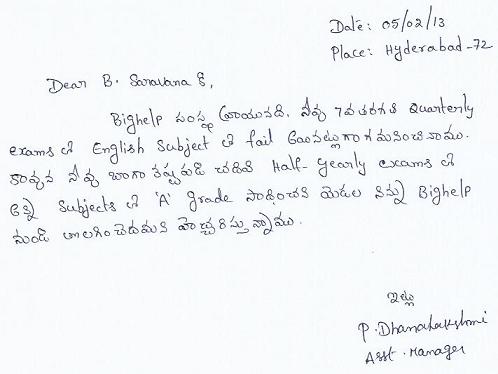 Date: 05/02/13
Place: Hyderabad-72
Dear B. Saravana G,
Bighelp సంస్థ వ్రాయునది. నీవు 7వ తరగతి Quarterly
exams లో English Subject లో fail అయినట్లుగా గమనించినాము.
కావున నీవు బాగా కష్టపడి చదివి Half-Yearly exams లో
అన్ని Subjects లో 'A' grade సాధించని యెడల నిన్ను Bighelp
నుండి తొలగించెదమని హెచ్చరిస్తున్నాము.
ఇట్లు
P. Dhanalakshmi
Asst. Manager